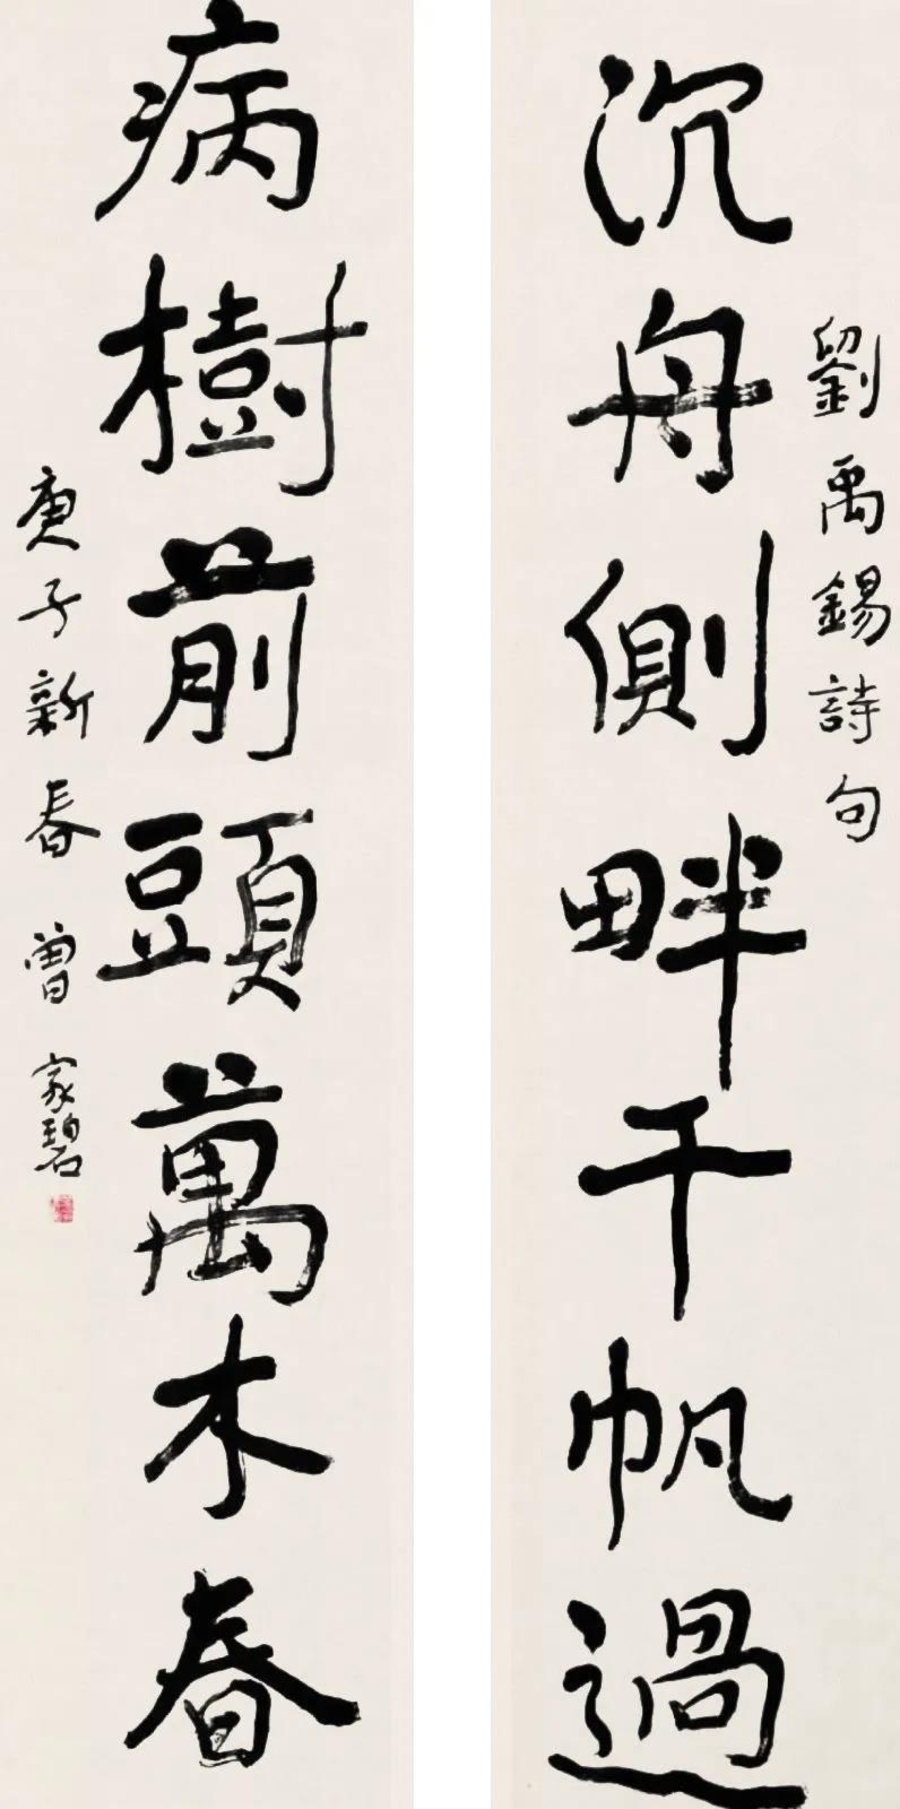 劉禹錫詩句
沉舟側畔千帆過
病樹前頭萬木春
庚子新春 曾家碧